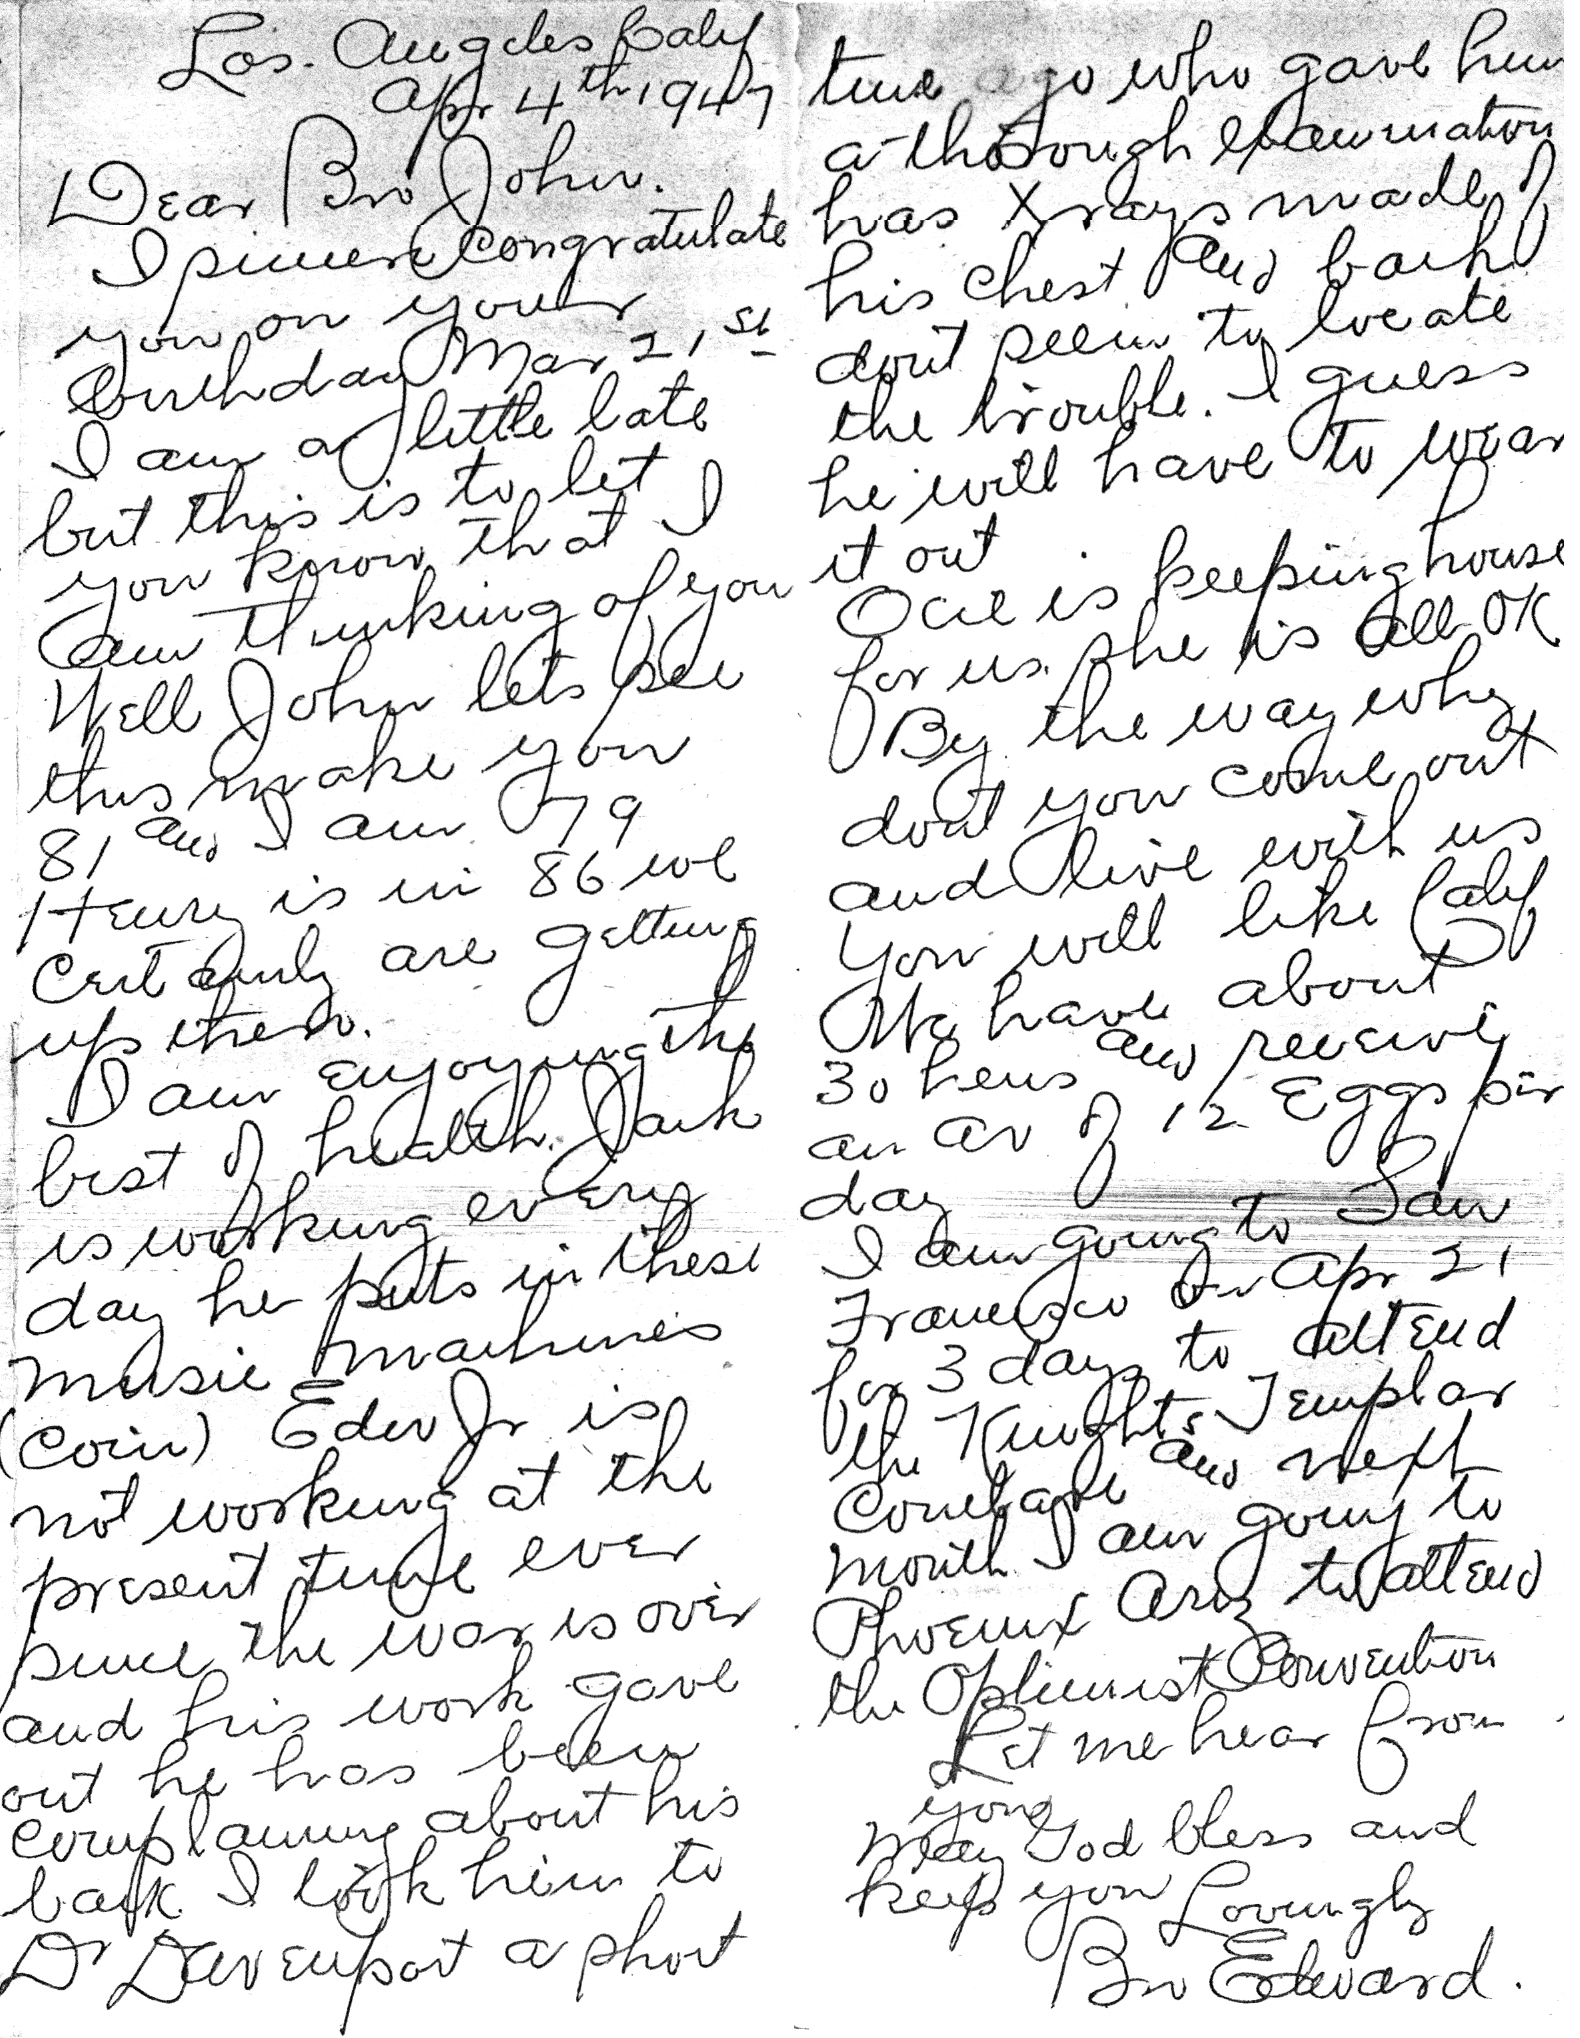 Los. Angeles Calif
Apr 4th 1947
Dear Bro John.
I sincere congratulate
you on your
birthday Mar 21st
I am a little late
but this is to let
you know that I
am thinking of you
Well John lets see
this make you
81 and I am 79
Henry is in 86 we
certainly are getting
up there.
I am enjoying the
best of health. Jack
is working every
day he puts in these
music machines
(coin) Edw Jr is
not working at the
present time ever
since the war is over
and his work gave
out he has been
complaining about his
back. I took him to
Dr Davenport a short
time ago who gave him
a thorough examination
has Xrays made of
his chest and back
dont seem to locate
the trouble. I guess
he will have to wear
it out
Ocie is keeping house
for us. she is all OK
By the way why
dont you come out
and live with us
you will like Calif
We have about
30 hens and receive
an av of 12 Eggs per
day
I am going to San
Francisco on Apr 21
for 3 days to attend
the Knights Templar
Conclave and next
month I am going to
Phoenix Ariz to attend
the Optimist Convention
Let me hear from
you
May God bless and
keep you Lovingly
Bro Edward.